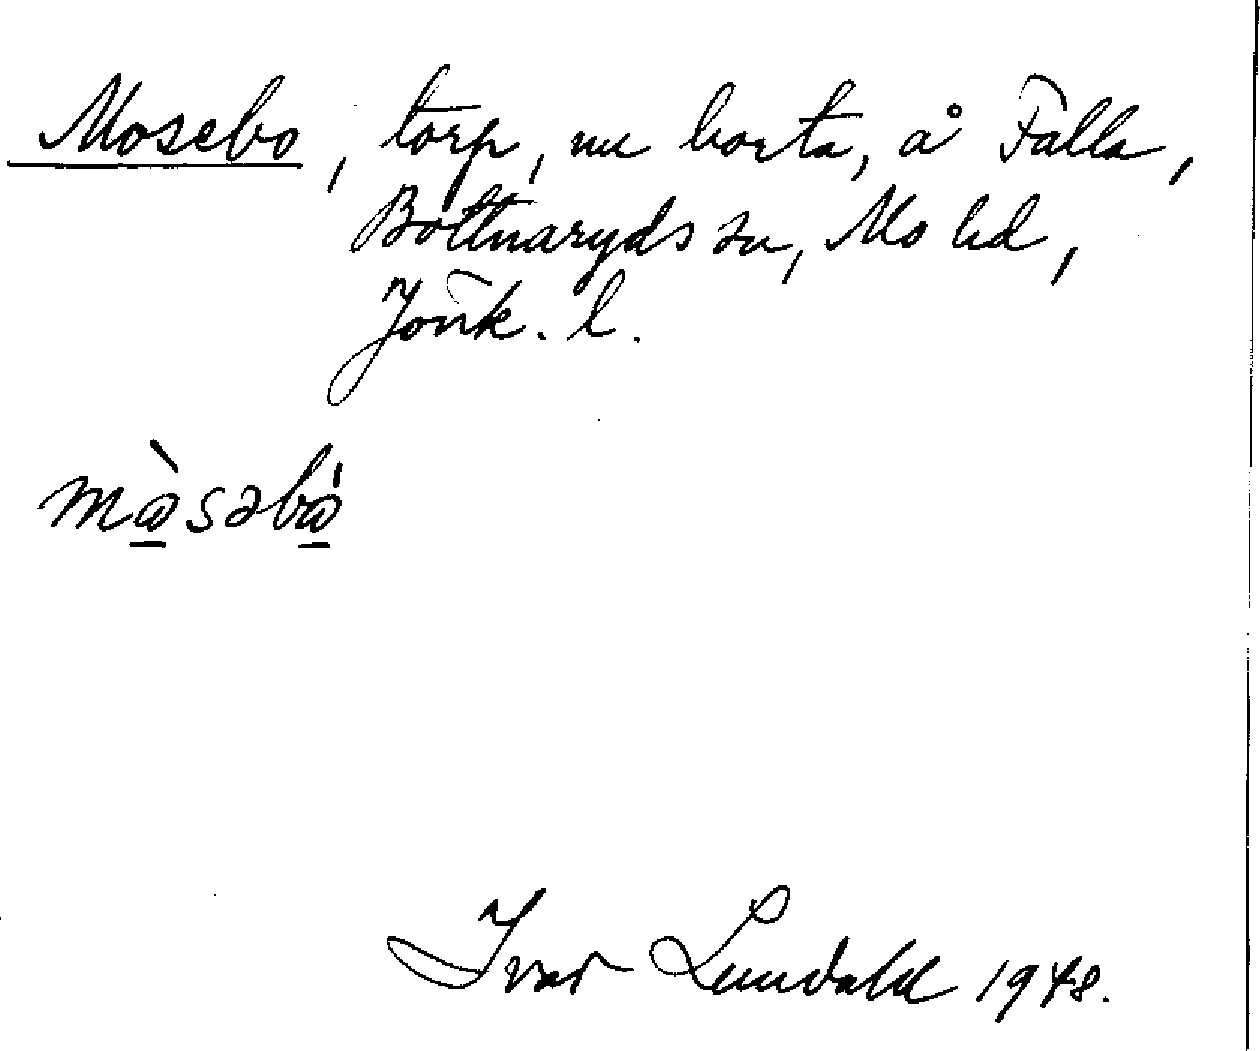 Mosebo, torp, nu borta, å Falla,
Bottnaryds sn, Mo hd,
Jönk. l.
mὼ̲səbώ̲
Ivar Lundahl 1948.